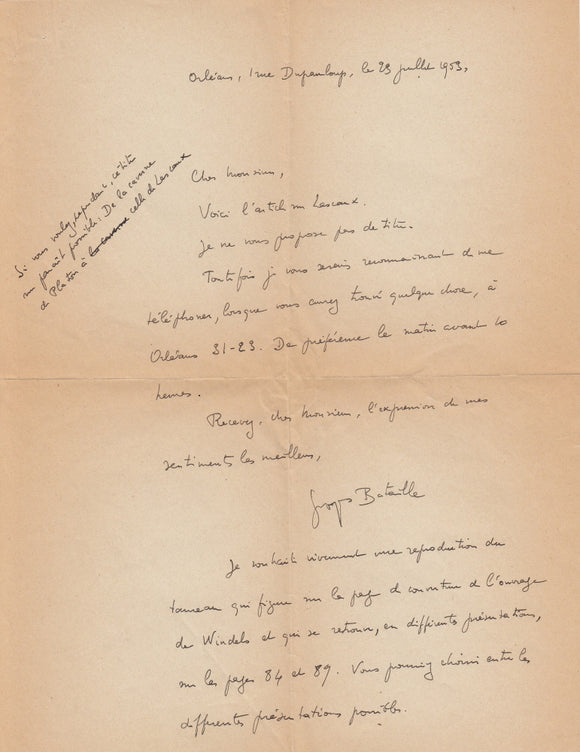 Orléans, 1 rue Dupanloup, le 23 juillet 1953,
Si vous voulez, cependant, ce titre
me paraît possible : De la caverne
de Platon à la caverne celle de Lascaux
Cher Monsieur,
Voici l'article sur Lascaux.
Je ne vous propose pas de titre.
Toutefois je vous serais reconnaissant de me
téléphoner, lorsque vous aurez trouvé quelque chose, à
Orléans 31-23. De préférence le matin avant 10
heures.
Recevez, cher Monsieur, l'expression de mes
sentiments les meilleurs,
Georges Bataille
Je souhaite vivement une reproduction du
taureau qui figure sur la page de couverture de l'ouvrage
de Windels et qui se retrouve, en différentes présentations,
sur les pages 84 et 89. Vous pourriez choisir entre les
différentes présentations possibles.